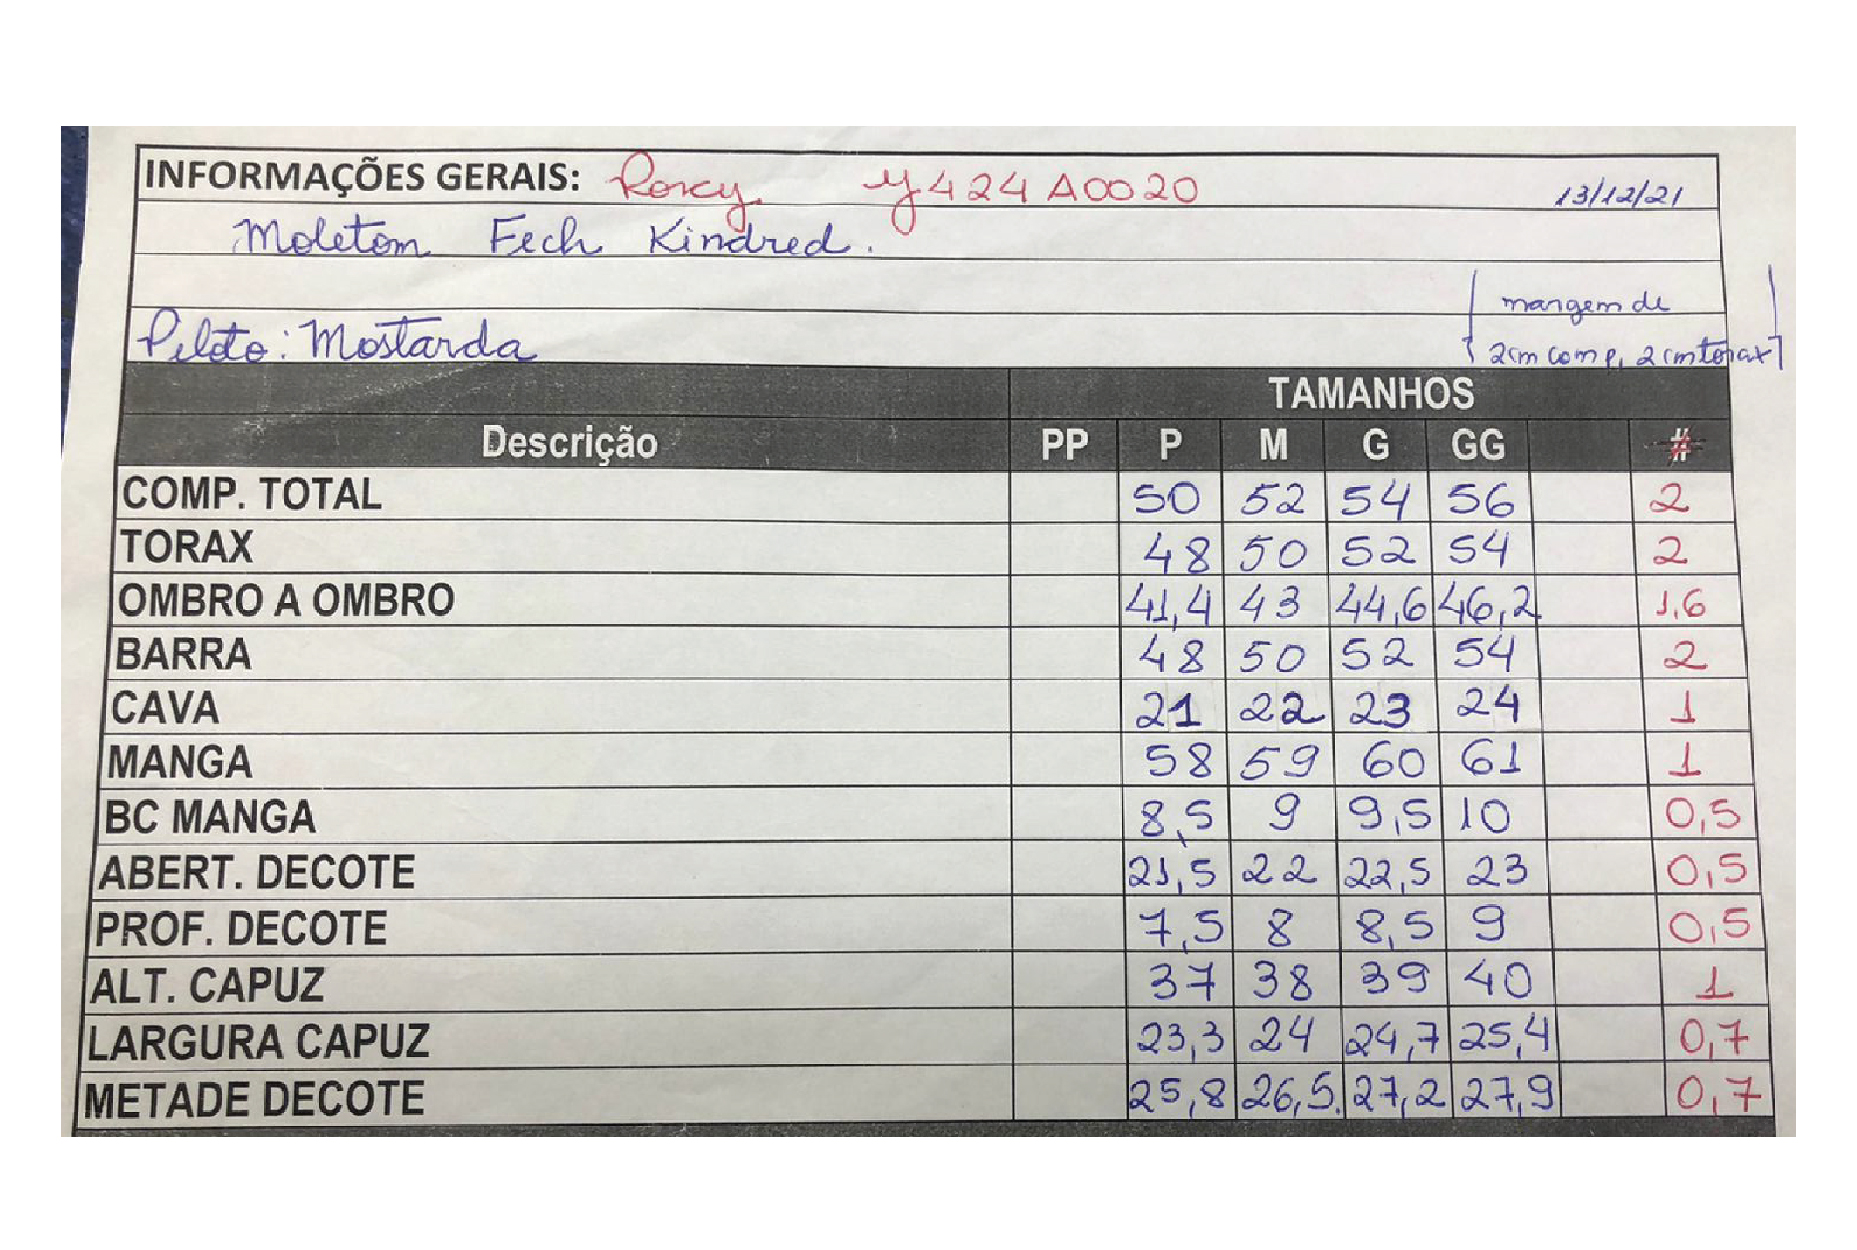 INFORMAÇÕES GERAIS: Roxy Y424A0020 13/12/21
Moletom Fech Kindred.
margem de
Piloto: Mostarda 2cm comp, 2cm torax
TAMANHOS
Descrição PP P M G GG #
COMP. TOTAL 50 52 54 56 2
TORAX 48 50 52 54 2
OMBRO A OMBRO 41,4 43 44,6 46,2 1,6
BARRA 48 50 52 54 2
CAVA 21 22 23 24 1
MANGA 58 59 60 61 1
BC MANGA 8,5 9 9,5 10 0,5
ABERT. DECOTE 21,5 22 22,5 23 0,5
PROF. DECOTE 7,5 8 8,5 9 0,5
ALT. CAPUZ 37 38 39 40 1
LARGURA CAPUZ 23,3 24 24,7 25,4 0,7
METADE DECOTE 25,8 26,5. 27,2 27,9 0,7